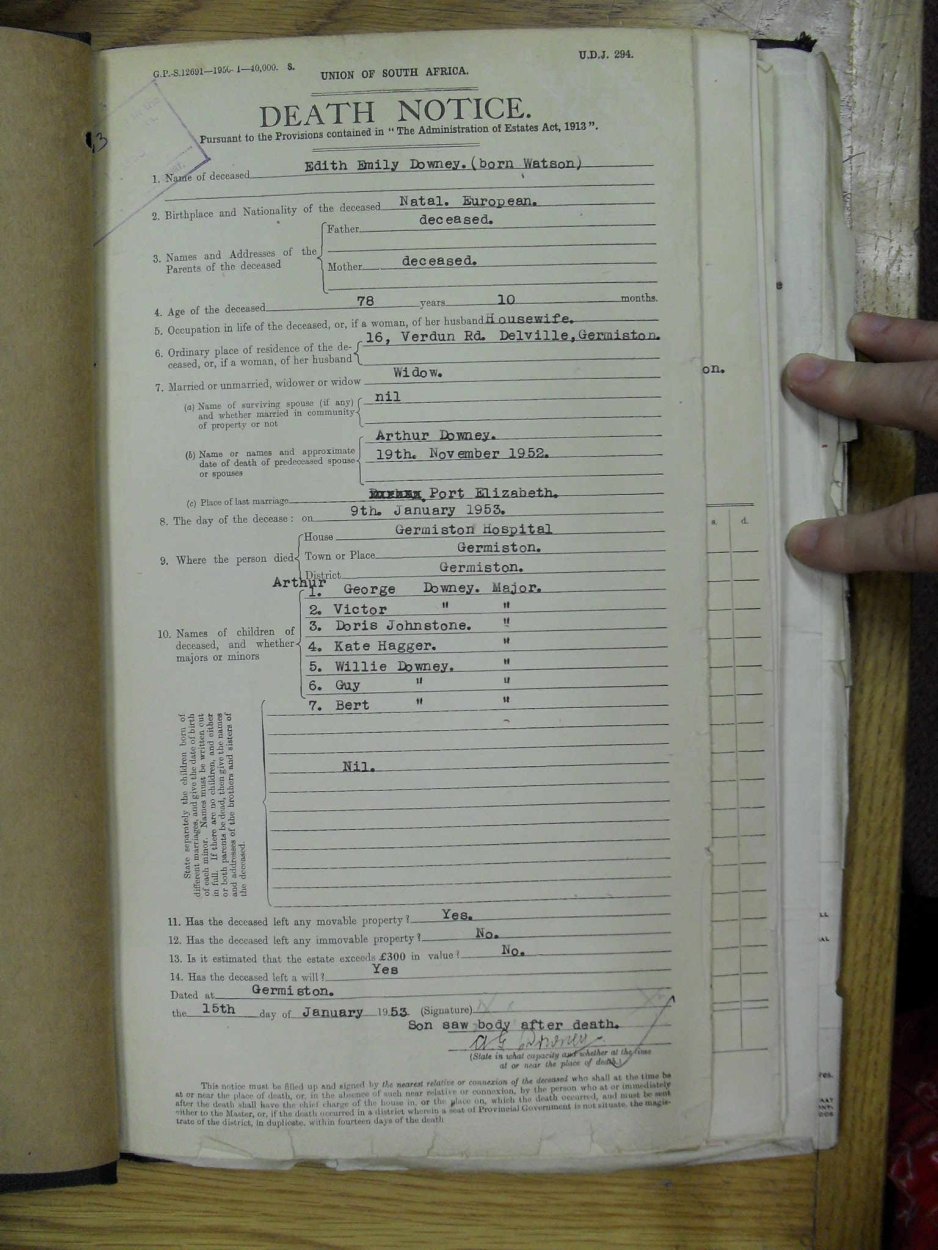 G.P.-S.12691—1950-1—40,000. S.
U.D.J. 294.
UNION OF SOUTH AFRICA.
DEATH NOTICE.
Pursuant to the Provisions contained in "The Administration of Estates Act, 1913".
1. Name of deceased Edith Emily Downey. (born Watson)
2. Birthplace and Nationality of the deceased Natal. European.
3. Names and Addresses of the Parents of the deceased
Father deceased.
Mother deceased.
4. Age of the deceased 78 years 10 months.
5. Occupation in life of the deceased, or, if a woman, of her husband Housewife.
6. Ordinary place of residence of the de-
ceased, or, if a woman, of her husband
16, Verdun Rd. Delville, Germiston.
7. Married or unmarried, widower or widow Widow.
(a) Name of surviving spouse (if any)
and whether married in community
of property or not
nil
(b) Name or names and approximate
date of death of predeceased spouse
or spouses
Arthur Downey.
19th. November 1952.
(c) Place of last marriage Port Elizabeth.
8. The day of the decease: on 9th. January 1953.
9. Where the person died
House Germiston Hospital
Town or Place Germiston.
District Germiston.
10. Names of children of
deceased, and whether
majors or minors
Arthur
1. George Downey. Major.
2. Victor " "
3. Doris Johnstone. "
4. Kate Hagger. "
5. Willie Downey. "
6. Guy " "
7. Bert " "
State separately the children born of
different marriages, and give the date of birth
of each minor. Names must be written out
in full. If there are no children, and either
or both parents be dead, then give the names
and addresses of the brothers and sisters of
the deceased.
Nil.
11. Has the deceased left any movable property? Yes.
12. Has the deceased left any immovable property? No.
13. Is it estimated that the estate exceeds £300 in value? No.
14. Has the deceased left a will? Yes
Dated at Germiston.
the 15th day of January 1953. (Signature)
Son saw body after death.
A G Downey
(State in what capacity and whether at the time
at or near the place of death.)
This notice must be filled up and signed by the nearest relative or connexion of the deceased who shall at the time be
at or near the place of death, or, in the absence of such near relative or connexion, by the person who at or immediately
after the death shall have the chief charge of the house in, or the place on, which the death occurred, and must be sent
either to the Master, or, if the death occurred in a district wherein a seat of Provincial Government is not situate, the magis-
trate of the district, in duplicate, within fourteen days of the death
on.
s. d.